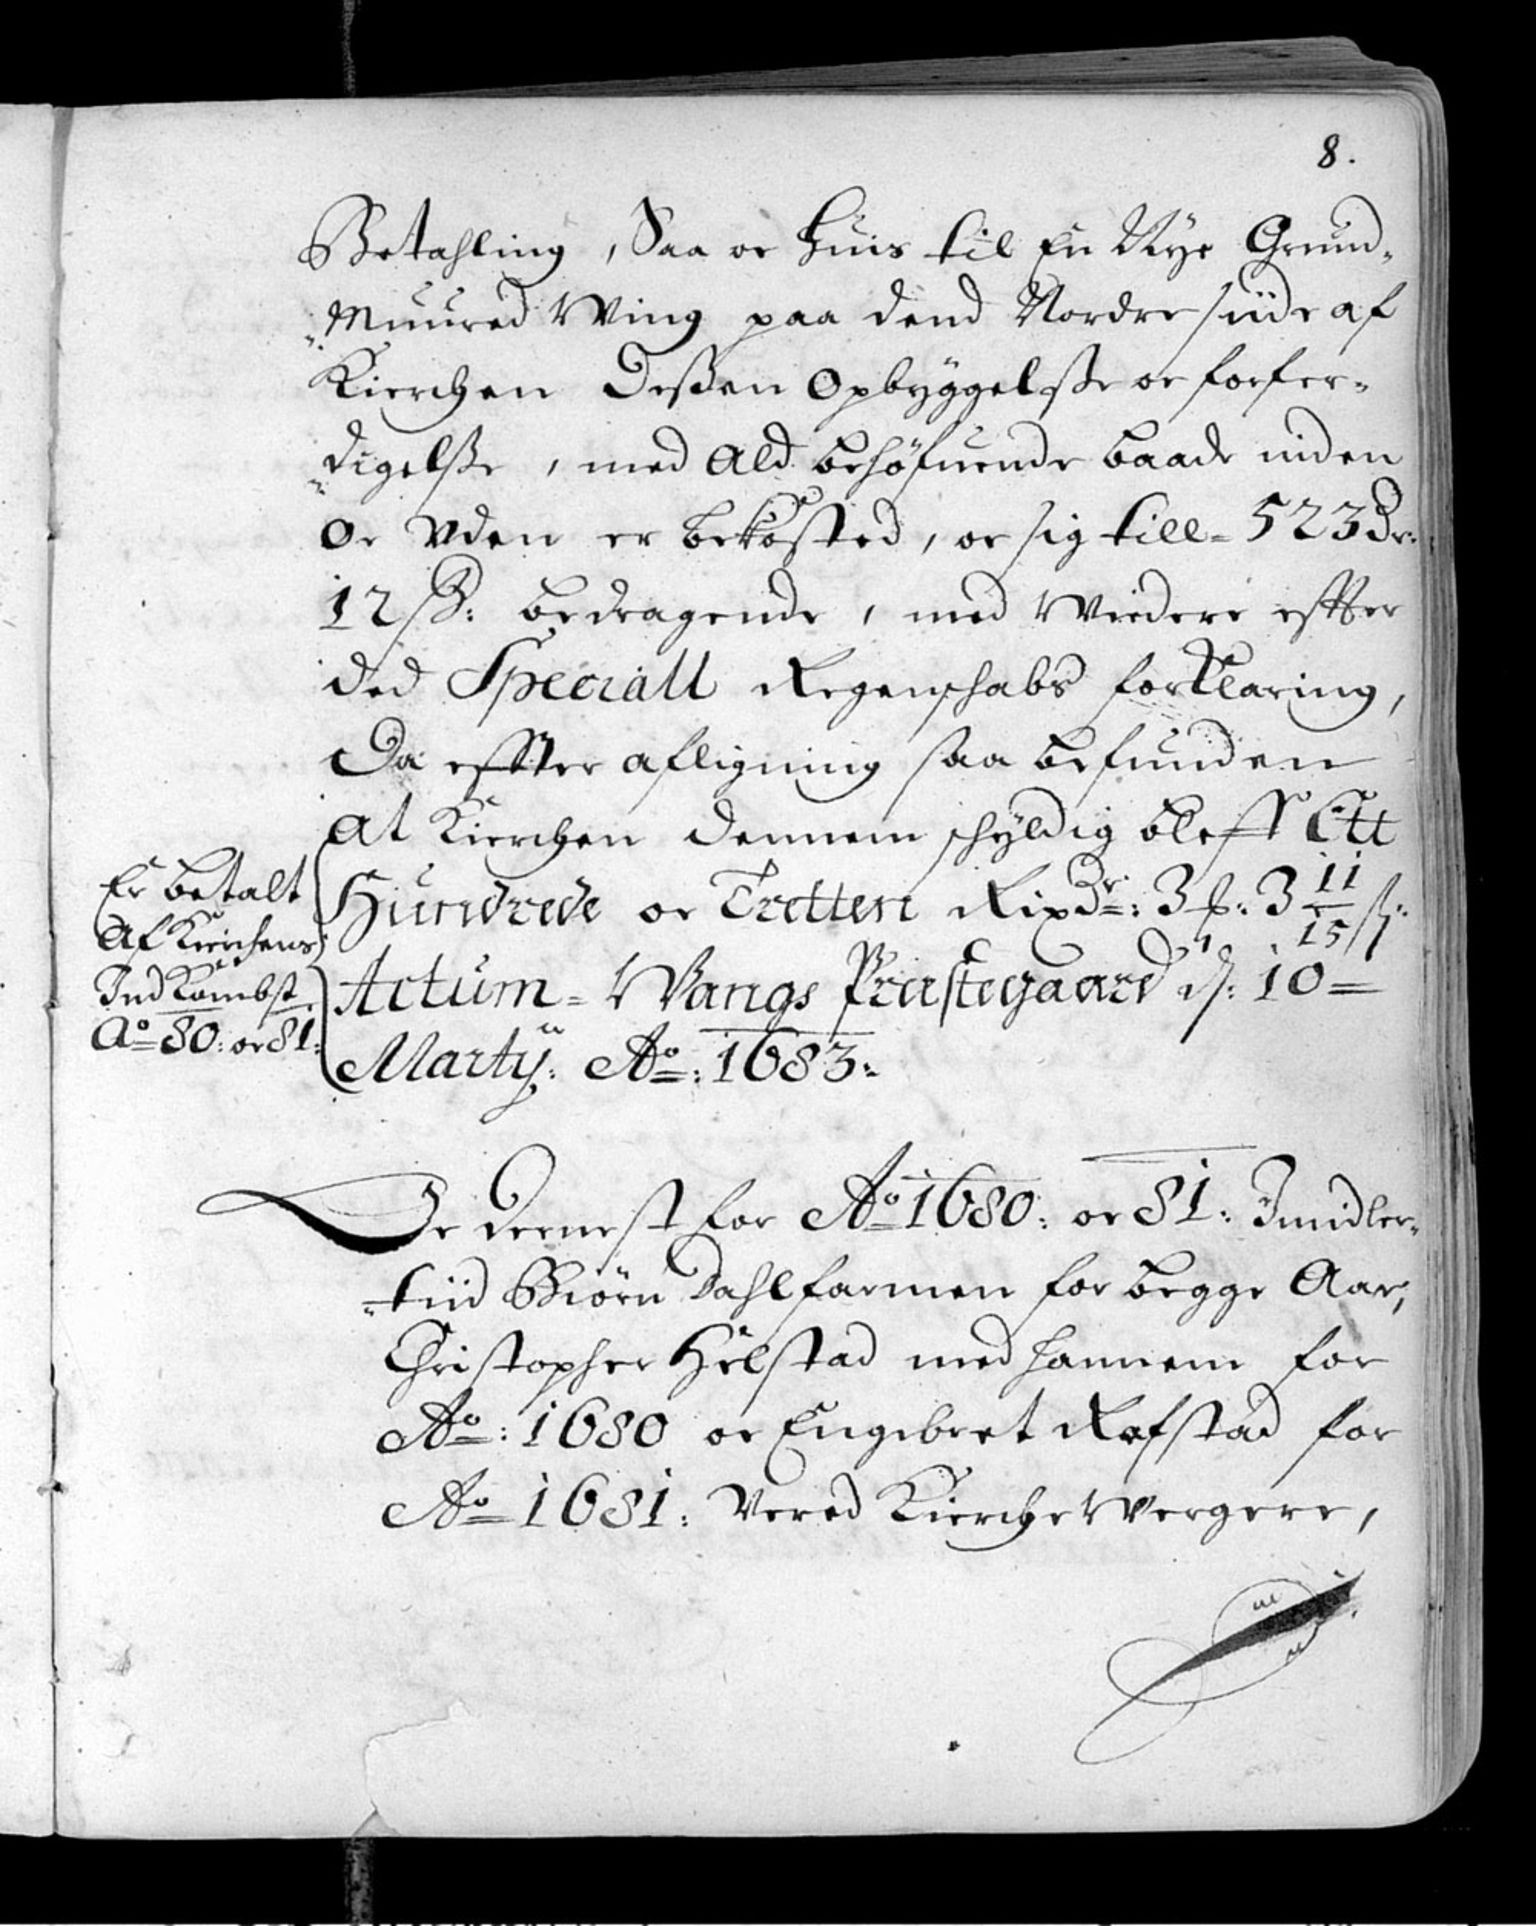 8.
Betahling, Saa oc huis til En Nye Grund-
Muured Wing paa dend Nordre siide af
Kierchen Dessen Opbyggelsse oc forfer-
digelsse, med Ald behøfuende baade inden
Oc Vden er bekosted, oc sig till= 523 Dr:
12 ß: bedragende, med Wiedere effter
ded Speciall Regenschabs forklaring,
Da effter afligning saa befunden
At Kierchen dennem schyldig bleff Ett
Hundrede oc Tretten Rixdr: 3 ƒ: 3 11/15 ß:
Actum= Wangs Præstegaard d: 10=
Martij: Ao: 1683:
Er betalt
Af Kirchens
Ind Kombst
Ao 80: oc 81:
Oc Dernest for Ao 1680: oc 81: Imidler-
tiid Biørn Dahlfarmen for begge Aar,
Christopher Hielstad med hannem for
Ao: 1680 oc Engebret Rofstad for
Ao 1681: Vered Kierche Wergere,